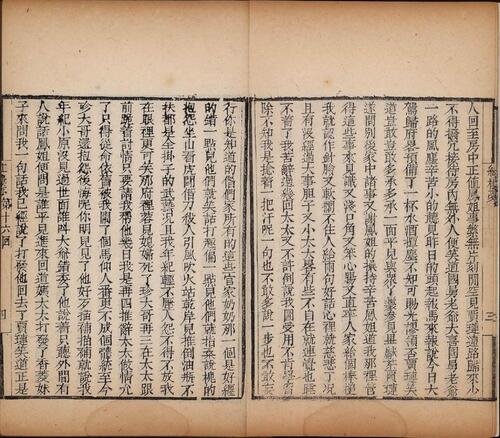 紅樓夢
三
人回至房中正值鳳姐事繁無片刻閒空見賈璉遠路歸來少
不得撥冗接待房內無外人便笑道國舅老爺大喜國舅老爺
一路的風塵辛苦小的聽見昨日的頭起報馬來報說今日大
駕歸府畧預備了一杯水酒撢塵不知可賜光謬領否賈璉笑
道豈敢豈敢多承多承一面平兒與衆丫鬟參見畢獻茶賈璉
遂問別後家中諸事又謝鳳姐的操持辛苦鳳姐道我那裡管
得這些事來見識又淺口角又笨心腸又直率人家給個棒槌
我就認作針臉又軟擱不住人給兩句好話心裡就慈悲了况
且又沒經過大事胆子又小太太畧有些不自在就連覺也睡
不着了我苦辭過幾回太太又不許倒說我圖受用不肯學習
殊不知我是捻着一把汗呢一句也不敢多說一步也不敢妄
行你是知道的偺們家所有的這些管家奶奶那一個是好纒
的錯一點兒他們就笑話打趣偏一點兒他們就指桑說槐的
抱怨坐山看虎鬥借刀殺人引風吹火站乾岸兒推倒油瓶不
扶都是全掛子的武藝况且我年紀輕不壓人怨不得不放我
在眼裡更可笑那府裡蓉兒媳婦死了珍大哥再三在太太跟
前跪着討情只要請我帮他幾日我是再四推辭太太做情允
了只得從命依舊被我鬧了個馬仰人番更不成個體統至今
珍大哥還抱怨後悔呢你明兒見了他好歹描補描補就說我
年紀小原沒見過世面誰叫大爺錯委了他說着只聽外間有
人說話鳳姐便問是誰平兒進來回道姨太太打發了香菱妹
子來問我一句話我已經說了打發他回去了賈璉笑道正是
紅樓夢 第十六回
四